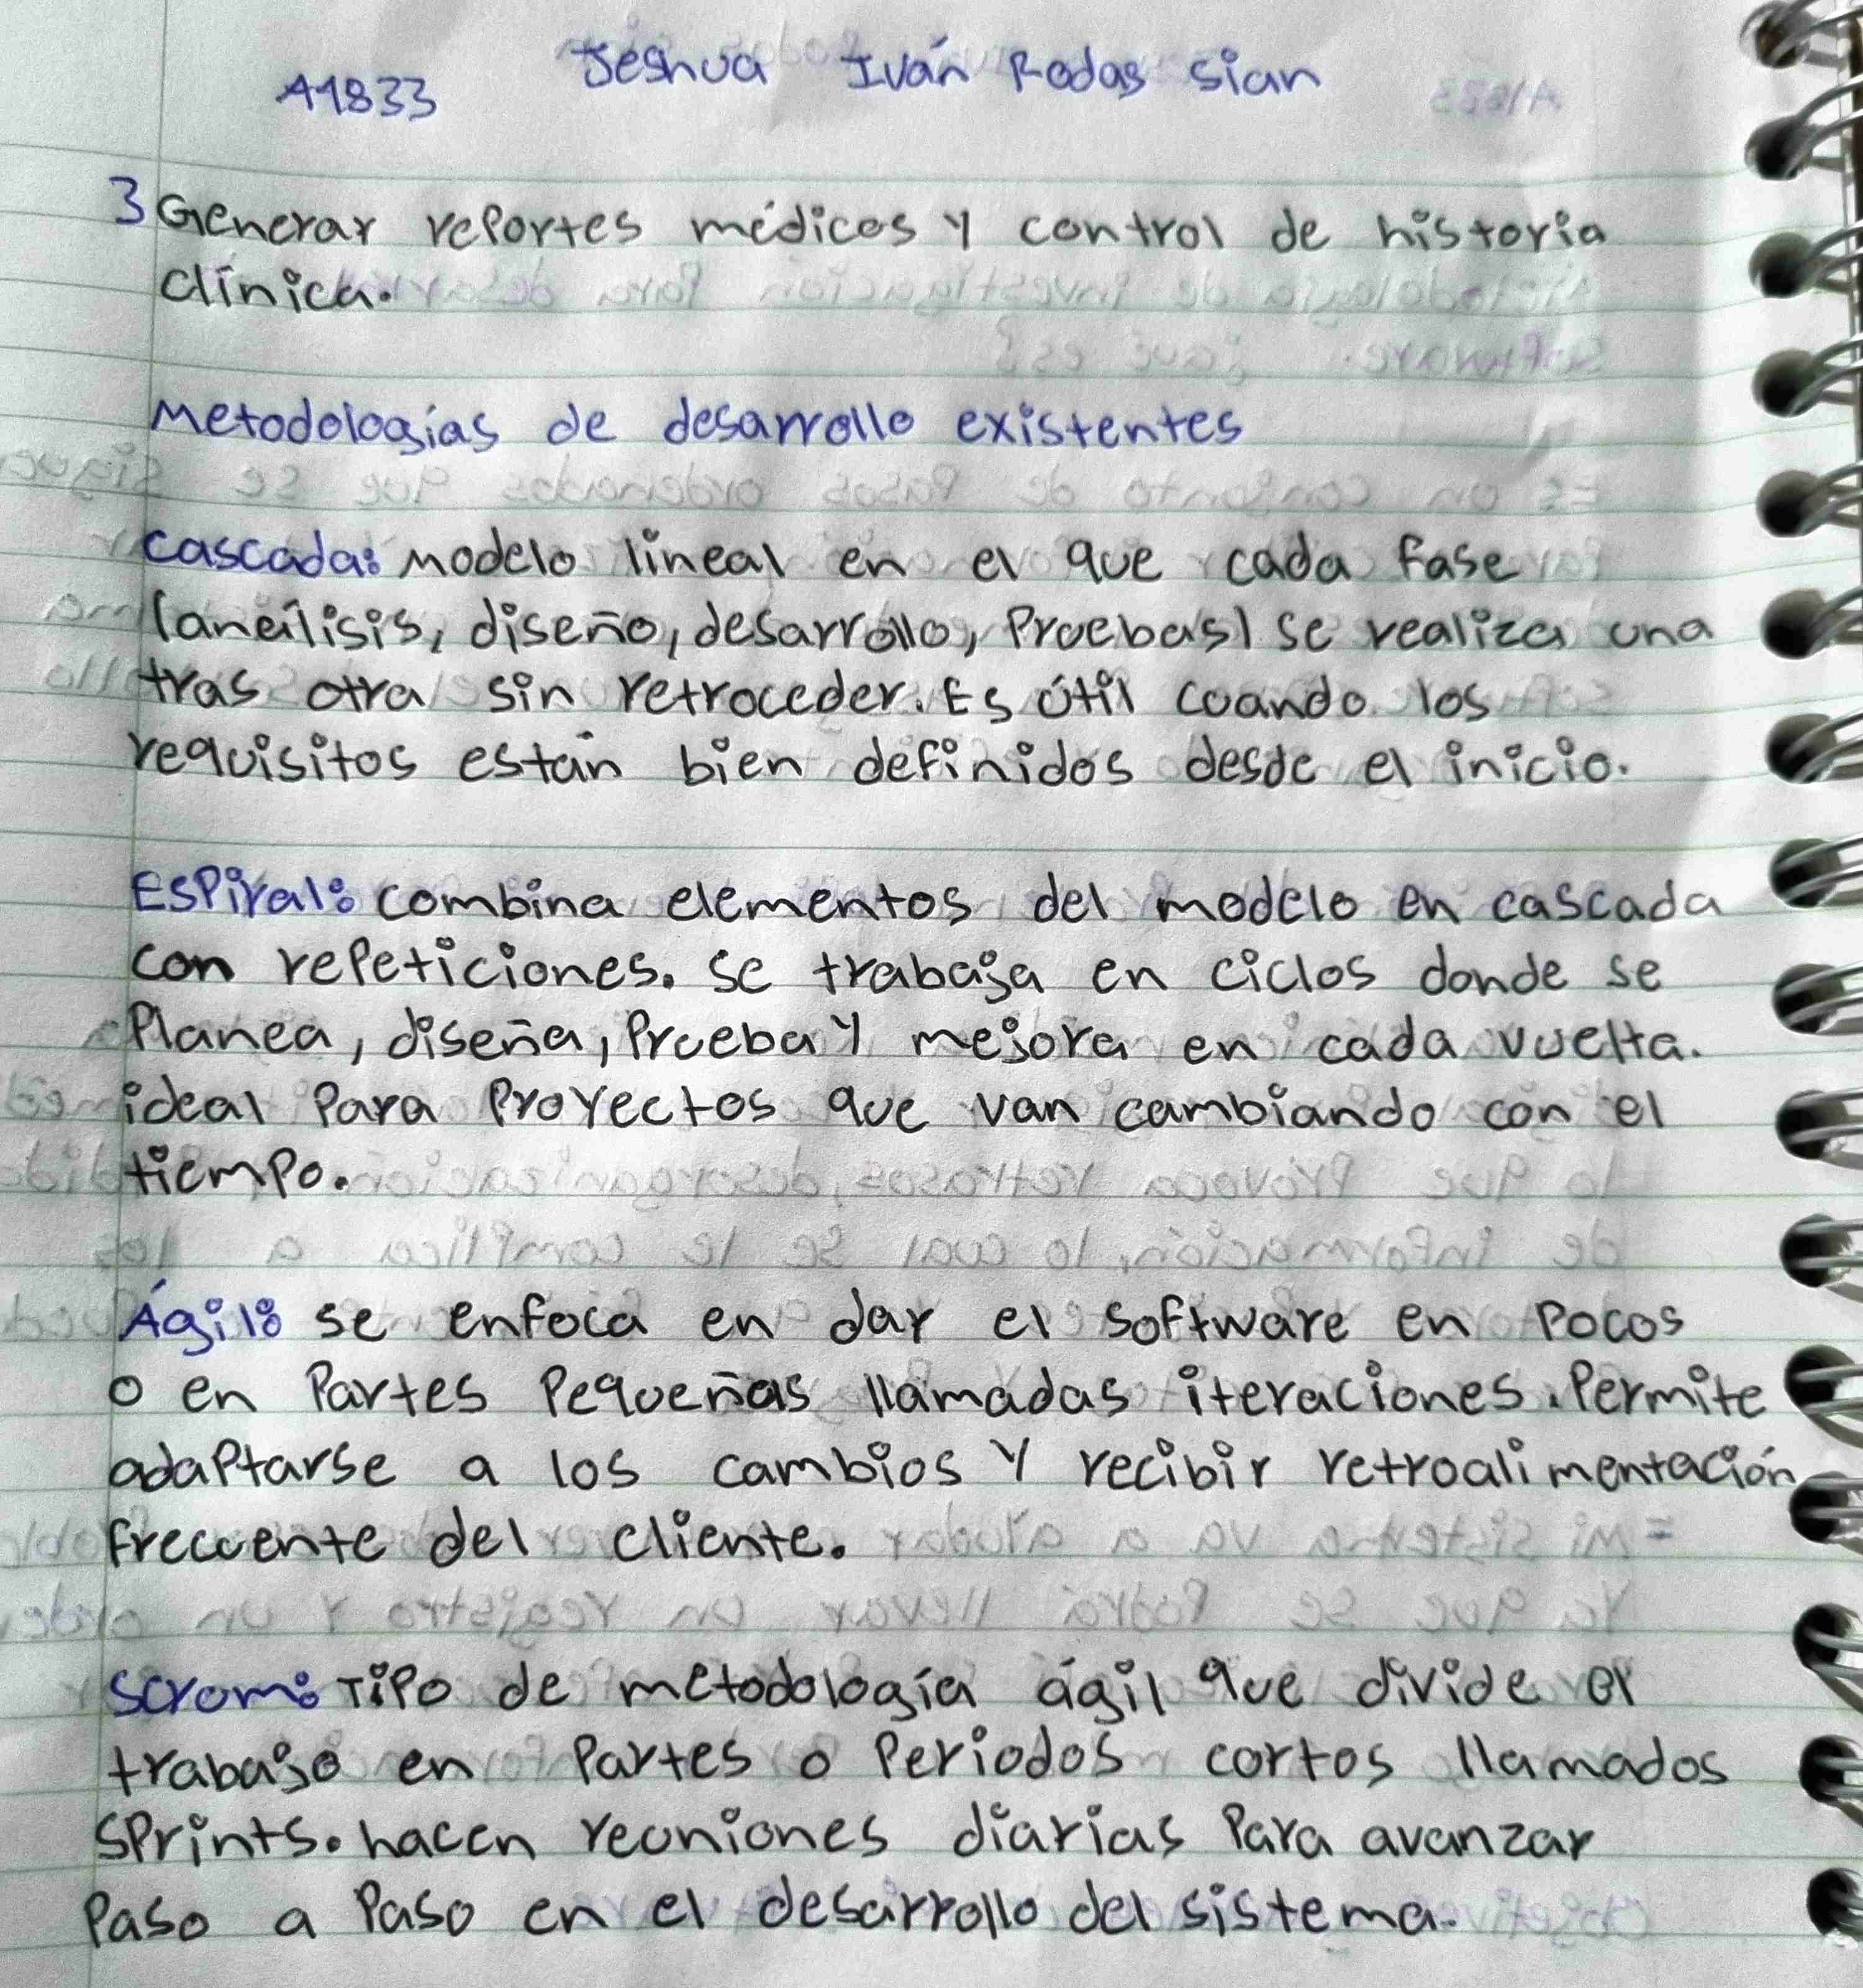 A1833
Jeshua Iván Rodas Sian
3 Generar reportes médicos y control de historia
clínica.
Metodologías de desarrollo existentes
Cascada: Modelo lineal en el que cada fase
(análisis, diseño, desarrollo, Pruebas) se realiza una
tras otra sin retroceder. Es útil cuando los
requisitos están bien definidos desde el inicio.
Espiral: combina elementos del modelo en cascada
con repeticiones. Se trabaja en ciclos donde se
Planea, diseña, Prueba y mejora en cada vuelta.
ideal Para Proyectos que van cambiando con el
tiempo.
Ágil: se enfoca en dar el software en Pocos
o en Partes Pequeñas llamadas iteraciones. Permite
adaptarse a los cambios y recibir retroalimentación
frecuente del cliente.
Scrum: Tipo de metodología ágil que divide el
trabajo en Partes o Periodos cortos llamados
Sprints. hacen reuniones diarias Para avanzar
Paso a Paso en el desarrollo del sistema.